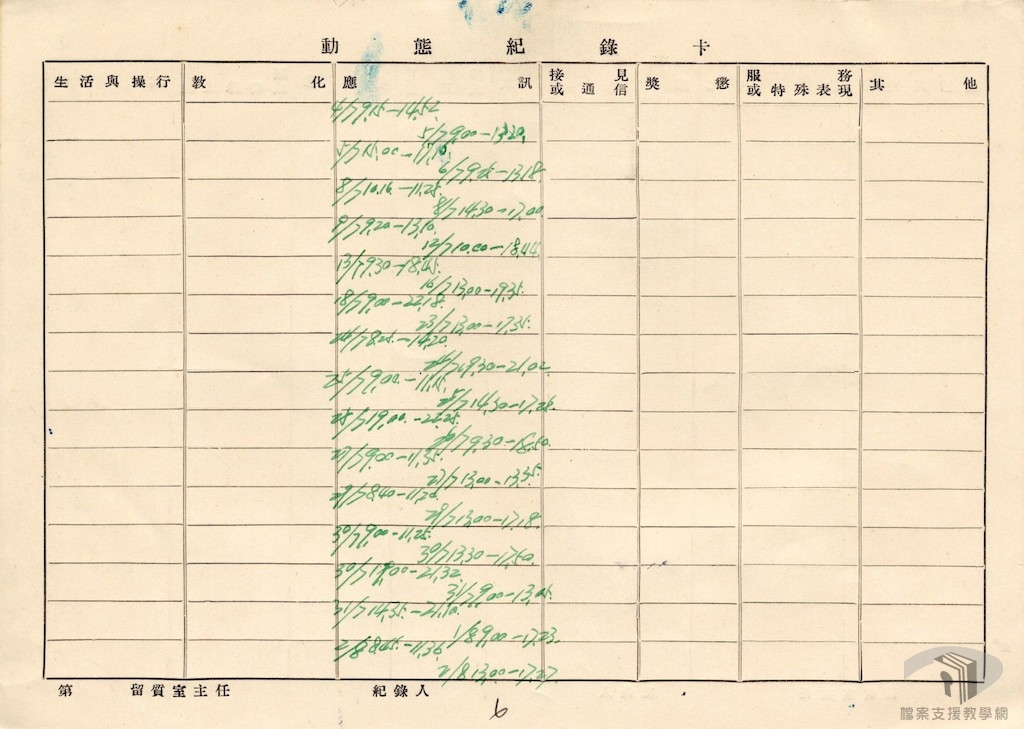 動態紀錄卡
生活與操行 教化 應訊 接見或通信 獎懲 服務或特殊表現 其他
4/7 9,15-14,52
5/7 9,00-13,20
5/7 15,00-17,10
6/7 9,25-13,18
8/7 10,16-11,25
8/7 14,30-17,00
9/7 9,20-13,10
12/7 10,00-18,44
13/7 9,30-18,45
16/7 13,00-19,35
18/7 9,00-22,18
23/7 13,00-17,35
24/7 8,25-14,20
24/7 19,30-21,02
25/7 9,00-11,15
25/7 14,30-17,28
25/7 19,00-22,25
26/7 9,30-18,50
27/7 9,00-11,35
27/7 13,00-13,35
29/7 8,40-11,20
29/7 13,00-17,18
30/7 9,00-11,25
30/7 13,30-17,50
30/7 19,00-21,32
31/7 9,00-13,05
31/7 14,35-21,10
1/8 9,00-17,23
2/8 8,45-11,36
2/8 13,00-17,27
第 留質室主任 紀錄人
6
檔案支援教學網